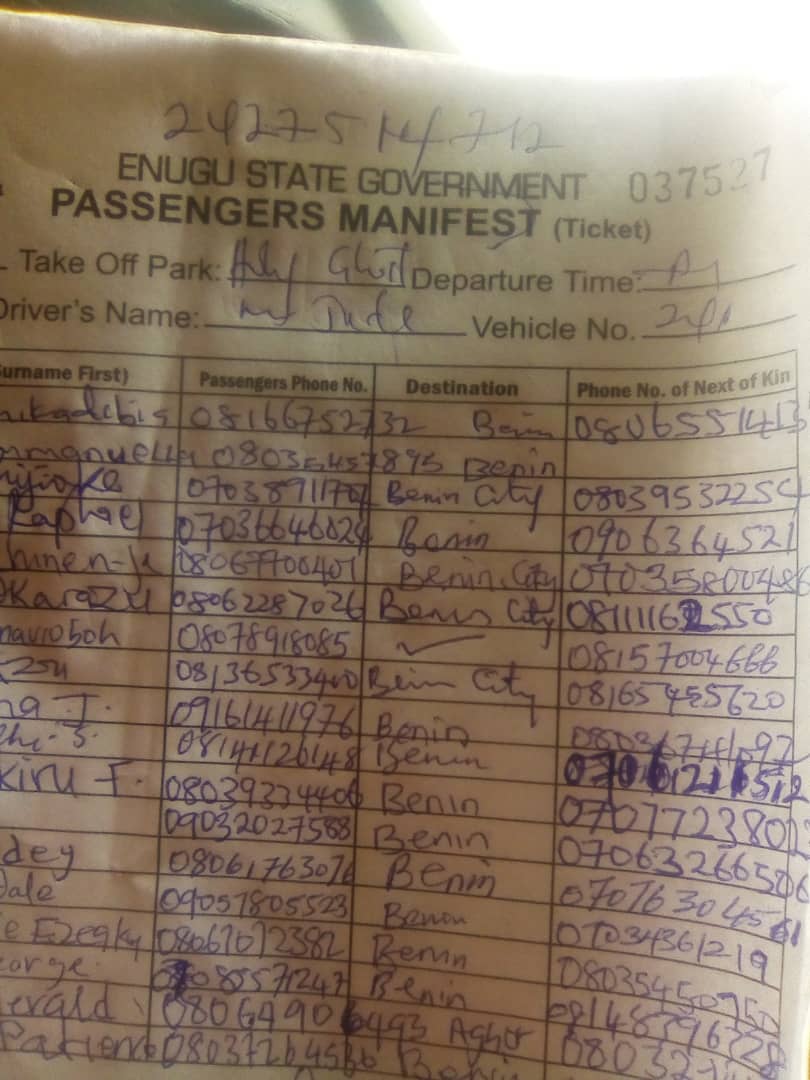 2427514712
ENUGU STATE GOVERNMENT 037527
PASSENGERS MANIFEST (Ticket)
Take Off Park: Holy Ghost Departure Time:
Driver's Name: Mr Jude Vehicle No.
Surname First) Passengers Phone No. Destination Phone No. of Next of Kin
08166752732 Benin 0806551413
mmanuella 08035457895 Benin
07038911702 Benin City 0803953225
Raphael 07036646024 Benin 0906364521
08067700401 Benin City 070358004
Okarazu 08062287026 Benin City 08111162550
08078918085 ✓ 08157004666
ezu 08136533400 Benin City 08165455620
na J. 09161411976 Benin
chi. S. 08141120148 Benin
kiru F. 08039334406 Benin 0707723802
09032027588 Benin 0706326650
dey 08061763076 Benin 07076304561
Dale 09057805523 Benin 07034361219
e Ezegky 08067072382 Benin 08035450750
eorge 08085571247 Benin 08148596728
erald 08064906493 Agbor 08032
Patience 08037264536 Benin